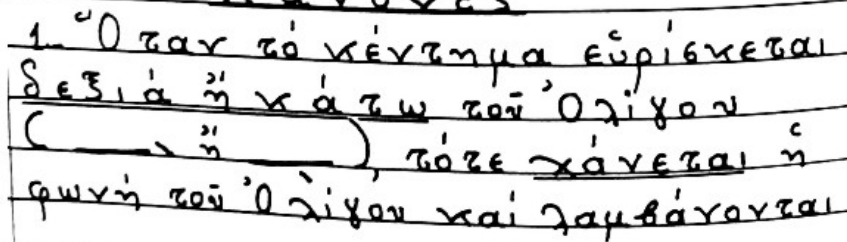 1. Ὅταν τό κέντημα εὑρίσκεται
δεξιά ἤ κάτω τοῦ Ὀλίγου
( ἤ ), τότε χάνεται ἡ
φωνή τοῦ Ὀλίγου καί λαμβάνονται